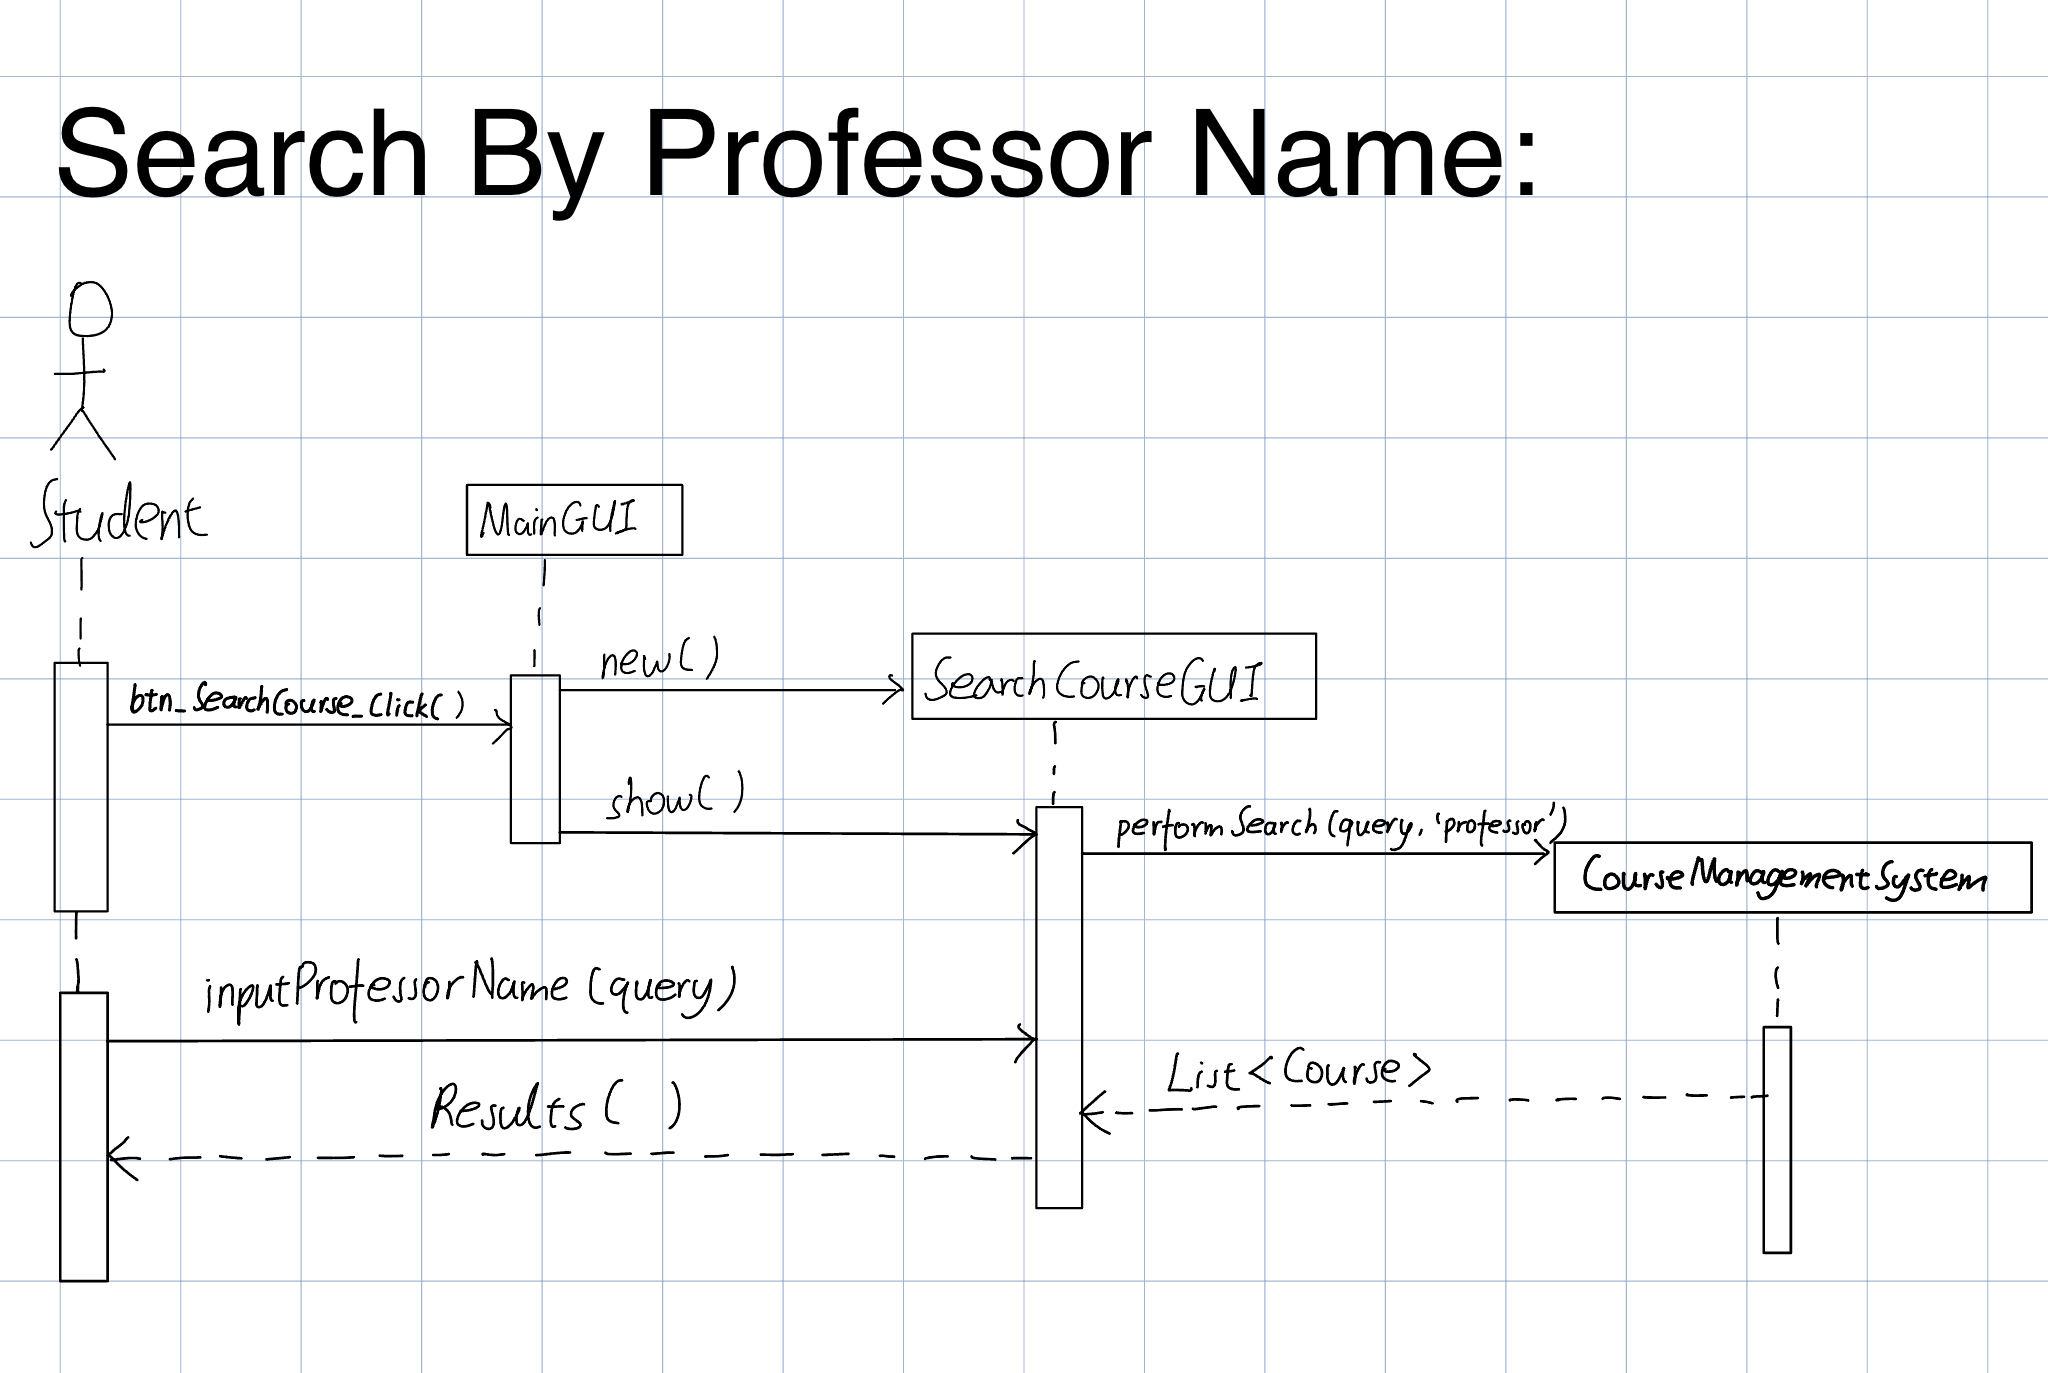 Search By Professor Name:
Student
MainGUI
new()
SearchCourseGUI
btn_SearchCourse_Click()
show()
performSearch(query, 'professor')
CourseManagementSystem
inputProfessorName(query)
List<Course>
Results( )